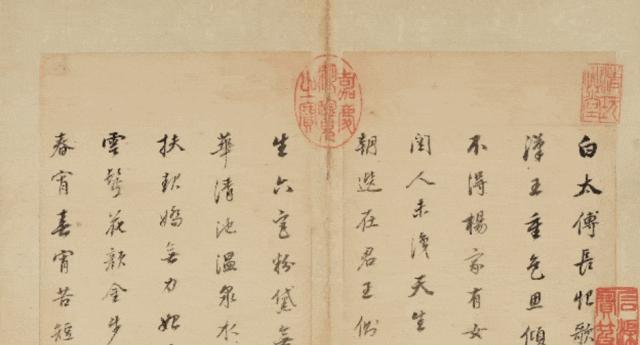 白太傅長恨歌
漢王重色思傾
不得楊家有女
閨人未識天生
朝選在君王側
生六宮粉黛無
華清池溫泉水
扶起嬌無力始
雲鬢花顏金步
春宵春宵苦短
嘉慶御覽之寶